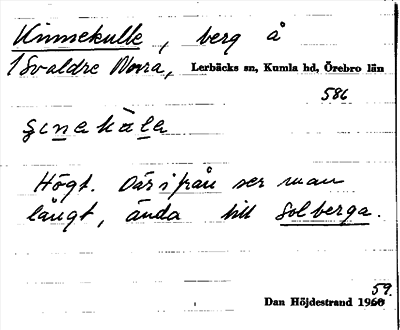 Kinnekulle, berg å
1 Svaldre Norra, Lerbäcks sn, Kumla hd, Örebro län
586
Högt. Därifrån ser man
långt, ända till Solberga.
59.
Dan Höjdestrand 1960